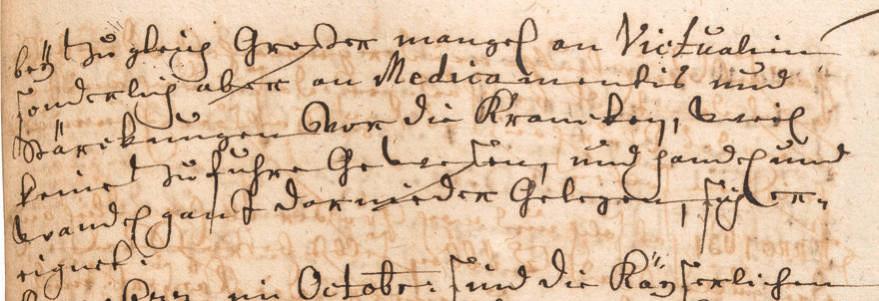 beÿ zu gleich Großer mangel an Victualien
sonderlich aber an Medicamentis und
Stärckungen vor die Krancken, weil
keine zu fuhre Gewesen, und handel und
wandel gantz darnieder Gelegen, sich er-
eignet:
im Octobr: sind die Käÿserlichen